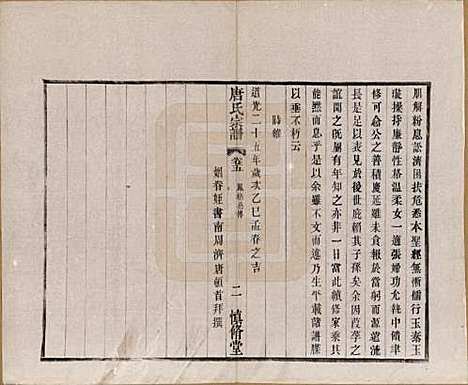 朋解紛息訟濟困扶危悉本聖經無慚儒行玉泰玉
璇操持廉靜性格溫柔女一適張婦功尤執中饋聿
修可 公之善積慶延雖未食報於當躬而源遠流
長是足於後世庇賴其子孫矣余因葭莩之
誼聞之既屬有年知之亦非一日當此續修家乘其
能默而息乎是以余雖不文而遂乃生平載簡譜牒
以垂不朽云
時維
道光二十五年歲次乙巳孟春之吉
姻眷姪書南周濟唐頓首拜撰
唐氏宗譜
卷五
二
慎修堂